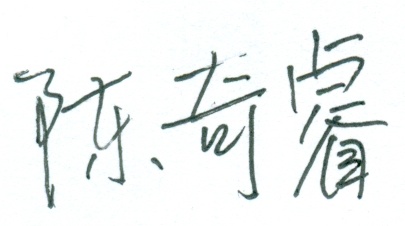 陈奇睿